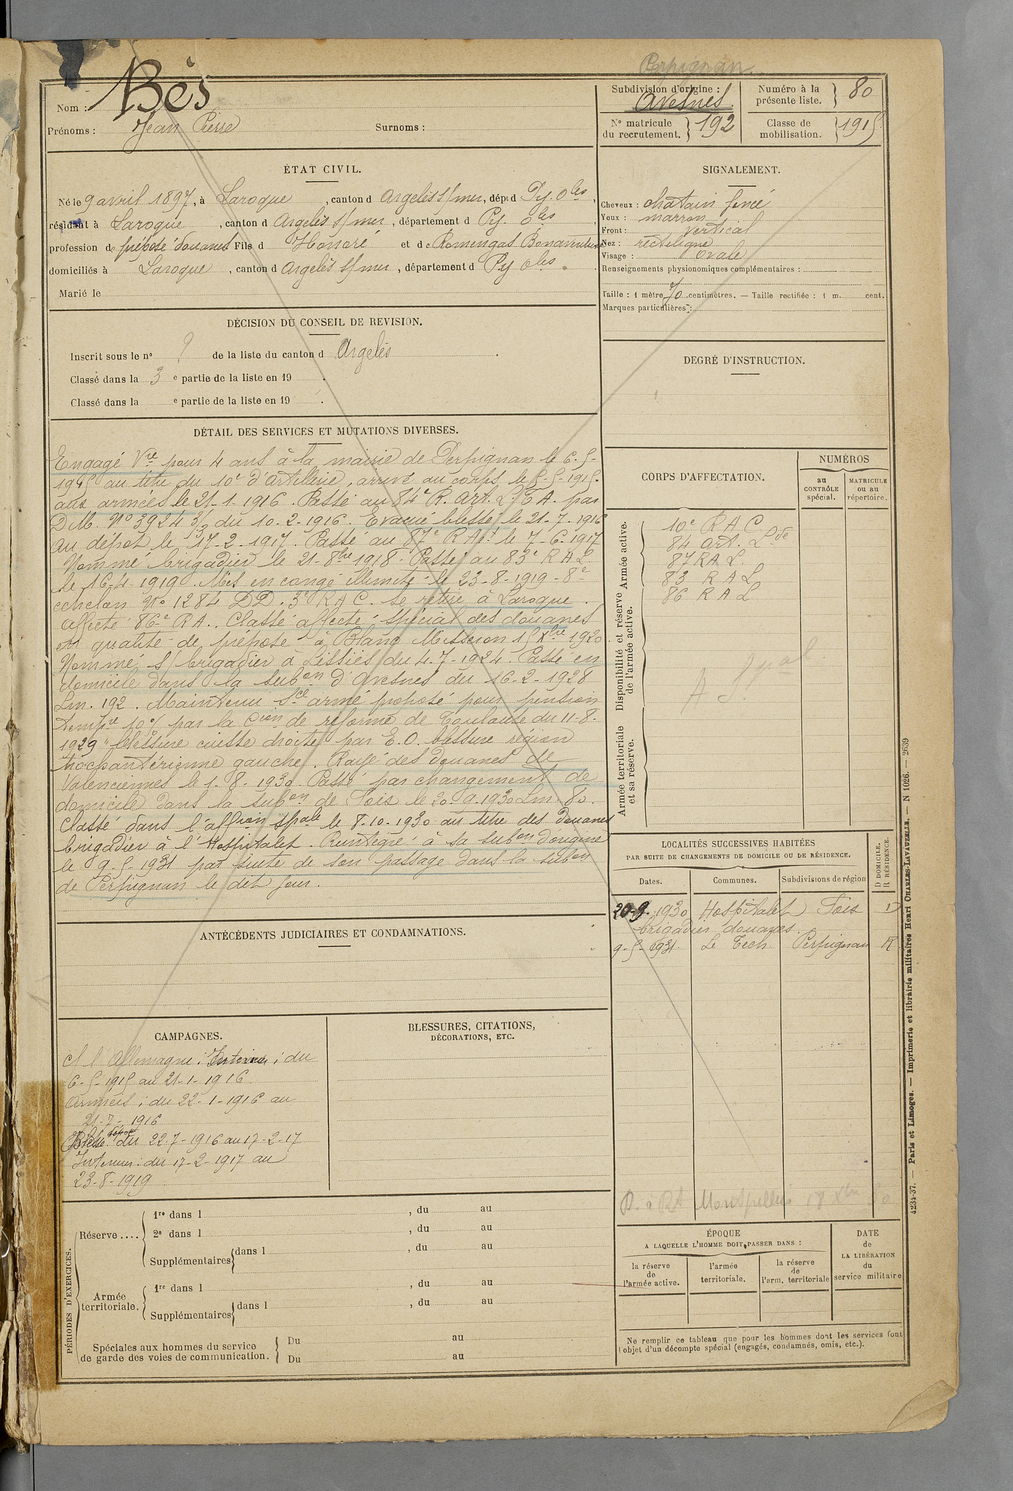 Perpignan.
Nom : Bès
Prénoms : Jean Pierre Surnoms :
Subdivision d'origine : Avesnes.
Numéro à la présente liste. 80
N° matricule du recrutement. 192
Classe de mobilisation. 1915
ÉTAT CIVIL.
Né le 9 avril 1897, à Laroque, canton d Argelès s/mer, dép. d Py. Oles,
résidant à Laroque, canton d Argelès s/mer, département d Py. Oles
profession de préposé douanes Fils d Honoré et de Romengas Bonaventure
domiciliés à Laroque, canton d Argelès s/mer, département d Py. Oles.
Marié le
SIGNALEMENT.
Cheveux : chatain foncé
Yeux : marron
Front : vertical
Nez : rectiligne
Visage : ovale
Renseignements physionomiques complémentaires :
Taille : 1 mètre 70 centimètres. — Taille rectifiée : 1 m. cent.
Marques particulières :
DÉCISION DU CONSEIL DE REVISION.
Inscrit sous le n° 9 de la liste du canton d Argelès
Classé dans la 3 e partie de la liste en 19 .
Classé dans la e partie de la liste en 19 .
DEGRÉ D'INSTRUCTION.
DÉTAIL DES SERVICES ET MUTATIONS DIVERSES.
Engagé Vre pour 4 ans à la mairie de Perpignan le 6-5-
1915 au titre du 10e d'artillerie, arrivé au corps le 8-5-1915.
aux armées le 21-1-1916. Passé au 84e R. Art. Lde A. par
D.M. N° 3924 3/3 du 10-2-1916. Evacué blessé le 21-7-1916
au dépôt le 17-2-1917. Passé au 87e R Art le 7-6-1917
Nommé brigadier le 21-8bre 1918. Passé au 83e R A L
le 16-4 1919. Mis en congé illimité le 23-8-1919 - 8e
echelon N° 1284 DD. 3e R A C. se retire à Laroque.
affecté 86e R A. Classé affecté spécial des douanes
en qualité de préposé à Blanc Misseron 15 Xbre 1920
Nommé s/brigadier à Lissies du 4-7-1924. Passé en
domicile dans la subon d'Avesnes du 16-2-1928
Lm. 192. Maintenu Sce armé proposé pour pension
tempre 10% par la Con de réforme de Toulouse du 11-8-
1929 "blessure cuisse droite par E.O. blessure région
trocantérienne gauche. Rayé des douanes de
Valenciennes le 1-8-1930. Passé par changement de
domicile dans la subon de Foix le 20-9-1930 Lm 80.
Classé dans l'affon spale le 8-10-1930 au titre des douanes
brigadier à l'Hospitalet. Réintégré à sa subon d'origine
le 9-5-1931 par suite de son passage dans la subon
de Perpignan le dit jour.
CORPS D'AFFECTATION.
NUMÉROS
au CONTRÔLE spécial.
MATRICULE ou au répertoire.
Armée active.
10e R A C
84 art. Lde
87 R A L
83 R A L
86 R A L
Disponibilité et réserve de l'armée active.
Armée territoriale et sa réserve.
LOCALITÉS SUCCESSIVES HABITÉES
PAR SUITE DE CHANGEMENTS DE DOMICILE OU DE RÉSIDENCE.
Dates. Communes. Subdivisions de région D DOMICILE. R RÉSIDENCE.
20-9-1930 Hospitalet Foix D
brigadier douanes.
9-5-1931 Le Tech Perpignan R
ANTÉCÉDENTS JUDICIAIRES ET CONDAMNATIONS.
CAMPAGNES.
C/ l'Allemagne : Intérieur : du
6-5-1915 au 21-1-1916
Armées : du 22-1-1916 au
21-7-1916
Blessé du 22-7-1916 au 17-2-17
Intérieur : du 17-2-1917 au
23-8-1919
BLESSURES, CITATIONS,
DÉCORATIONS, ETC.
PÉRIODES D'EXERCICES.
Réserve ....
1re dans l , du au
2e dans l , du au
Supplémentaires dans l , du au
Armée territoriale.
1re dans l , du au
Supplémentaires dans l , du au
Spéciales aux hommes du service de garde des voies de communication.
Du au
Du au
R. à RA Montpellier 18 Xbre
ÉPOQUE
A LAQUELLE L'HOMME DOIT PASSER DANS :
la réserve de l'armée active.
l'armée territoriale.
la réserve de l'arm. territoriale
DATE de LA LIBÉRATION du service militaire
Ne remplir ce tableau que pour les hommes dont les services font
l'objet d'un décompte spécial (engagés, condamnés, omis, etc.).
4234-37. — Paris et Limoges. — Imprimerie et librairie militaires Henri CHARLES-LAVAUZELLE. — N 1026. — 2639